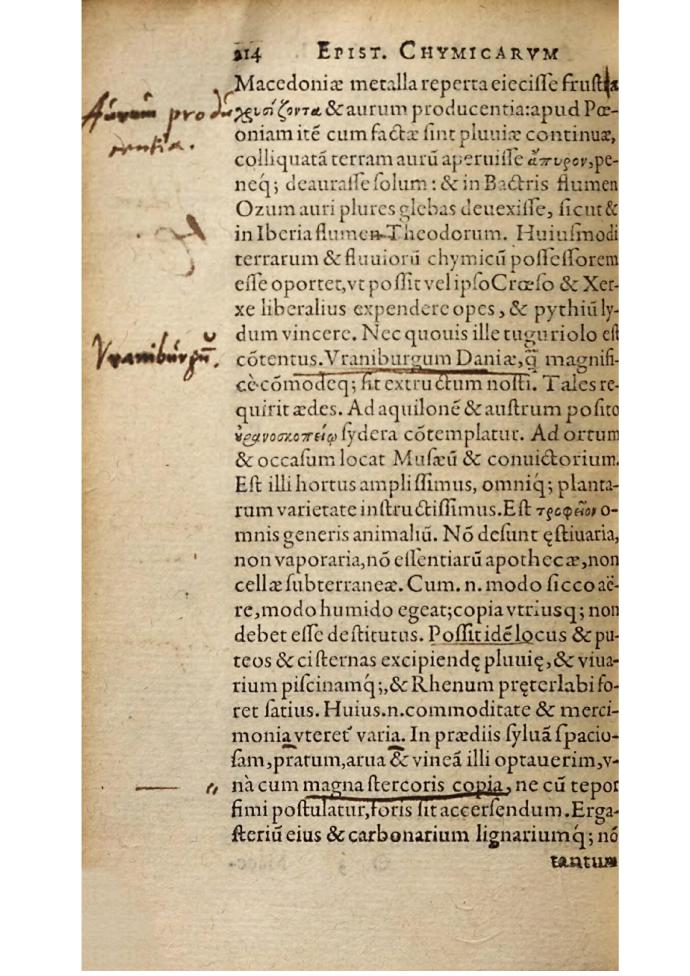 214 EPIST. CHYMICARVM
Macedoniæ metalla reperta eiecisse frusta
Aurum produ-
χρυσίζοντα & aurum producentia: apud Pœ-
centia.
oniam itē cum factæ sint pluuiæ continuæ,
colliquatā terram aurū aperuisse ἄπυρον, pe-
neq́; deaurasse solum: & in Bactris flumen
Ozum auri plures glebas deuexisse, sicut &
in Iberia flumen Theodorum. Huiusmodi
terrarum & fluuiorū chymicū possessorem
esse oportet, vt possit vel ipso Crœso & Xer-
xe liberalius expendere opes, & pythiū ly-
dum vincere. Nec quouis ille tuguriolo est
Vraniburgū.
cōtentus. Vraniburgum Daniæ, q̄ magnifi-
cè cōmodeq́; sit extructum nosti. Tales re-
quirit ædes. Ad aquilonē & austrum posito
ὐρανοσκοπείῳ sydera cōtemplatur. Ad ortum
& occasum locat Musæū & conuictorium.
Est illi hortus amplissimus, omniq́; planta-
rum varietate instructissimus. Est τροφεῖον o-
mnis generis animaliū. Nō desunt ęstiuaria,
non vaporaria, nō essentiarū apothecæ, non
cellæ subterraneæ. Cum. n. modo sicco aë-
re, modo humido egeat; copia vtriusq; non
debet esse destitutus. Possit idē locus & pu-
teos & cisternas excipiendę pluuię, & viua-
rium piscinamq́;, & Rhenum pręterlabi fo-
ret satius. Huius. n. commoditate & merci-
monia vteret' varia. In prædiis syluā spacio-
sam, pratum, arua & vineā illi optauerim, v-
nà cum magna stercoris copia, ne cū tepor
fimi postulatur, foris sit accersendum. Erga-
steriū eius & carbonarium lignariumq́; nō
tantum